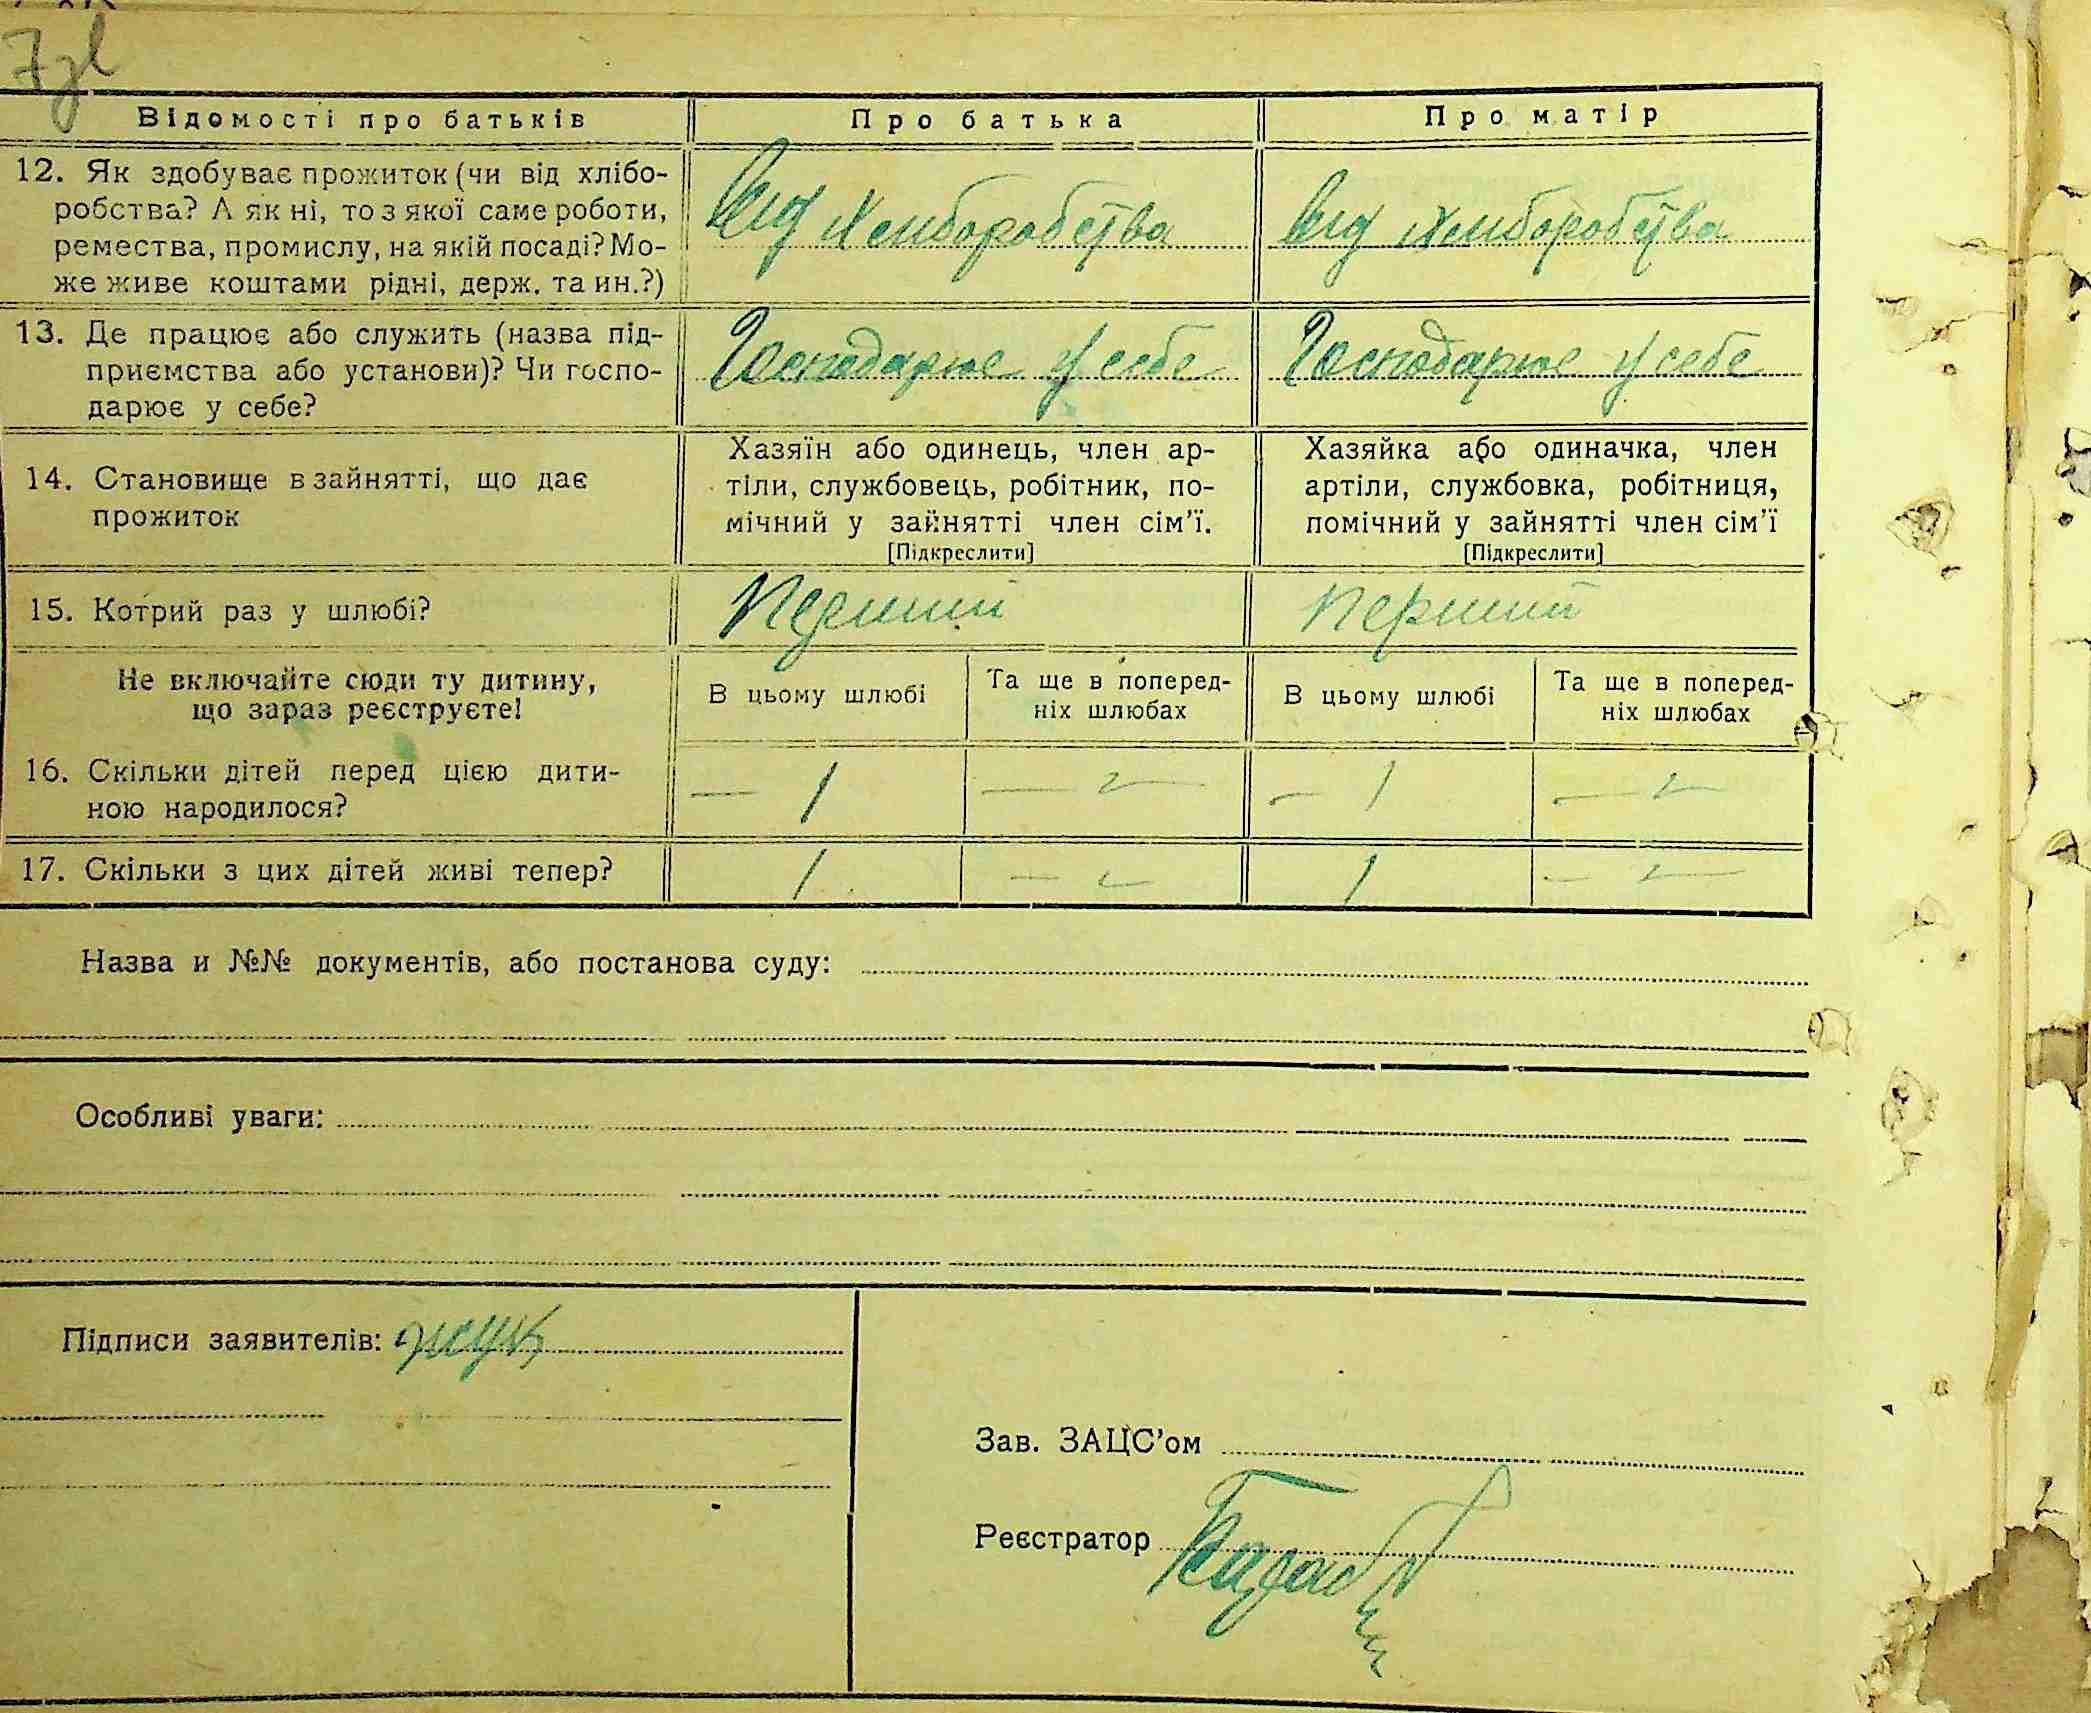 Відомості про батьків Про батька Про матір
12. Як здобуває прожиток (чи від хлібо-
робства? А як ні, то з якої саме роботи,
ремества, промислу, на якій посаді? Мо-
же живе коштами рідні, держ. та ин.?)
від хлиборобства від хлиборобства
13. Де працює або служить (назва під-
приємства або установи)? Чи госпо-
дарює у себе?
Господарює у себе Господарює у себе
14. Становище в зайнятті, що дає
прожиток
Хазяїн або одинець, член ар-
тіли, службовець, робітник, по-
мічний у зайнятті член сім'ї.
[Підкреслити]
Хазяйка або одиначка, член
артіли, службовка, робітниця,
помічний у зайнятті член сім'ї
[Підкреслити]
15. Котрий раз у шлюбі? Перший Перший
Не включайте сюди ту дитину,
що зараз реєструєте!
В цьому шлюбі
Та ще в поперед-
ніх шлюбах
В цьому шлюбі
Та ще в поперед-
ніх шлюбах
16. Скільки дітей перед цією дити-
ною народилося?
— 1 — — 1 —
17. Скільки з цих дітей живі тепер? 1 — 1 —
Назва и №№ документів, або постанова суду:
Особливі уваги:
Підписи заявителів: Жук
Зав. ЗАЦС'ом
Реєстратор